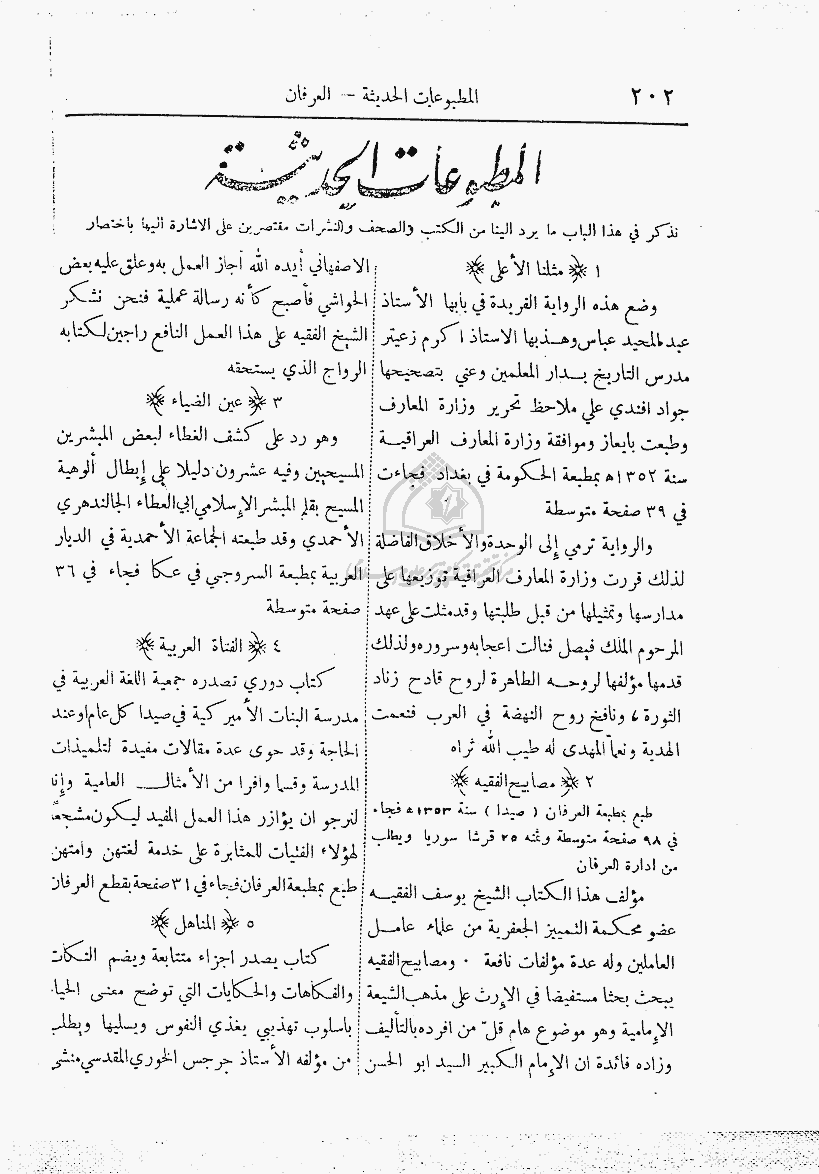 ٢٠٢
المطبوعات الحديثة — العرفان
المطبوعات الحديثة
نذكر في هذا الباب ما يرد الينا من الكتب والصحف والنشرات مقتصرين على الاشارة اليها باختصار
١ ﴿ مثلنا الأعلى ﴾
وضع هذه الرواية الفريدة في بابها الأستاذ
عبد المحيد عباس وهــذبها الاستاذ اكرم زعيتر
مدرس التاريخ بــدار المعلمين وعني بتصحيحها
جواد افندي علي ملاحظ تحرير وزارة المعارف
وطبعت بايعاز وموافقة وزارة المعارف العراقيــة
سنة ١٣٥٢ ه بمطبعة الحكومة في بغداد فجاءت
في ٣٩ صفحة متوسطة
والرواية ترمي إلى الوحدة والأخلاق الفاضلة
لذلك قررت وزارة المعارف العراقية توزيعها على
مدارسها وتمثيلها من قبل طلبتها وقد مثلت على عهد
المرحوم الملك فيصل فنالت اعجابه وسروره ولذلك
قدمها مؤلفها لروحــه الطاهرة لروح قادح زناد
الثورة ، ونافخ روح النهضة في العرب فنعمت
الهدية ونعماً المهدى له طيب الله ثراه
٢ ﴿ مصابيح الفقيه ﴾
طبع بمطبعة العرفان ( صيدا ) سنة ١٣٥٣ ه فجاء
في ٩٨ صفحة متوسطة وثمنه ٢٥ قرشا سوريا ويطلب
من ادارة العرفان
مؤلف هذا الكتاب الشيخ يوسف الفقيــه
عضو محكمة التمييز الجعفرية من علماء عامــل
العاملين وله عدة مؤلفات نافعة ٠ ومصابيح الفقيه
يبحث بحثا مستفيضا في الإرث على مذهب الشيعة
الإمامية وهو موضوع هام قلّ من افرده بالتأليف
وزاده فائدة ان الإمام الكبير السيد ابو الحسن
الاصفهاني أيده الله أجاز العمل به وعلق عليه بعض
الحواشي فأصبح كأنه رسالة عملية فنحن نشكر
الشيخ الفقيه على هذا العمل النافع راجين لكتابه
الرواج الذي يستحقه
٣ ﴿ عين الضياء ﴾
وهو رد على كشف الغطاء لبعض المبشرين
المسيحيين وفيه عشرون دليلا على إبطال ألوهية
المسيح بقلم المبشر الإسلامي ابي العطاء الجالندهري
الأحمدي وقد طبعته الجماعة الأحمدية في الديار
العربية بمطبعة السروجي في عكا فجاء في ٣٦
صفحة متوسطة
٤ ﴿ الفتاة العربية ﴾
كتاب دوري تصدره جمعية اللغة العربية في
مدرسة البنات الأميركية في صيدا كل عام او عند
الحاجة وقد حوى عدة مقالات مفيدة لتلميذات
المدرسة وقسما وافرا من الأمثالــ العامية وإنا
لنرجو ان يؤازر هذا العمل المفيد ليكون مشجعاً
لهؤلاء الفتيات للمثابرة على خدمة لغتهن وامتهن
طبع بمطبعة العرفان فجاء في ٣١ صفحة بقطع العرفان
٥ ﴿ المناهل ﴾
كتاب يصدر اجزاء متتابعة ويضم النكات
والفكاهات والحكايات التي توضح معنى الحياة
باسلوب تهذيبي يغذي النفوس ويسليها ويطلب
من مؤلفه الأستاذ جرجس الخوري المقدسي منشئ